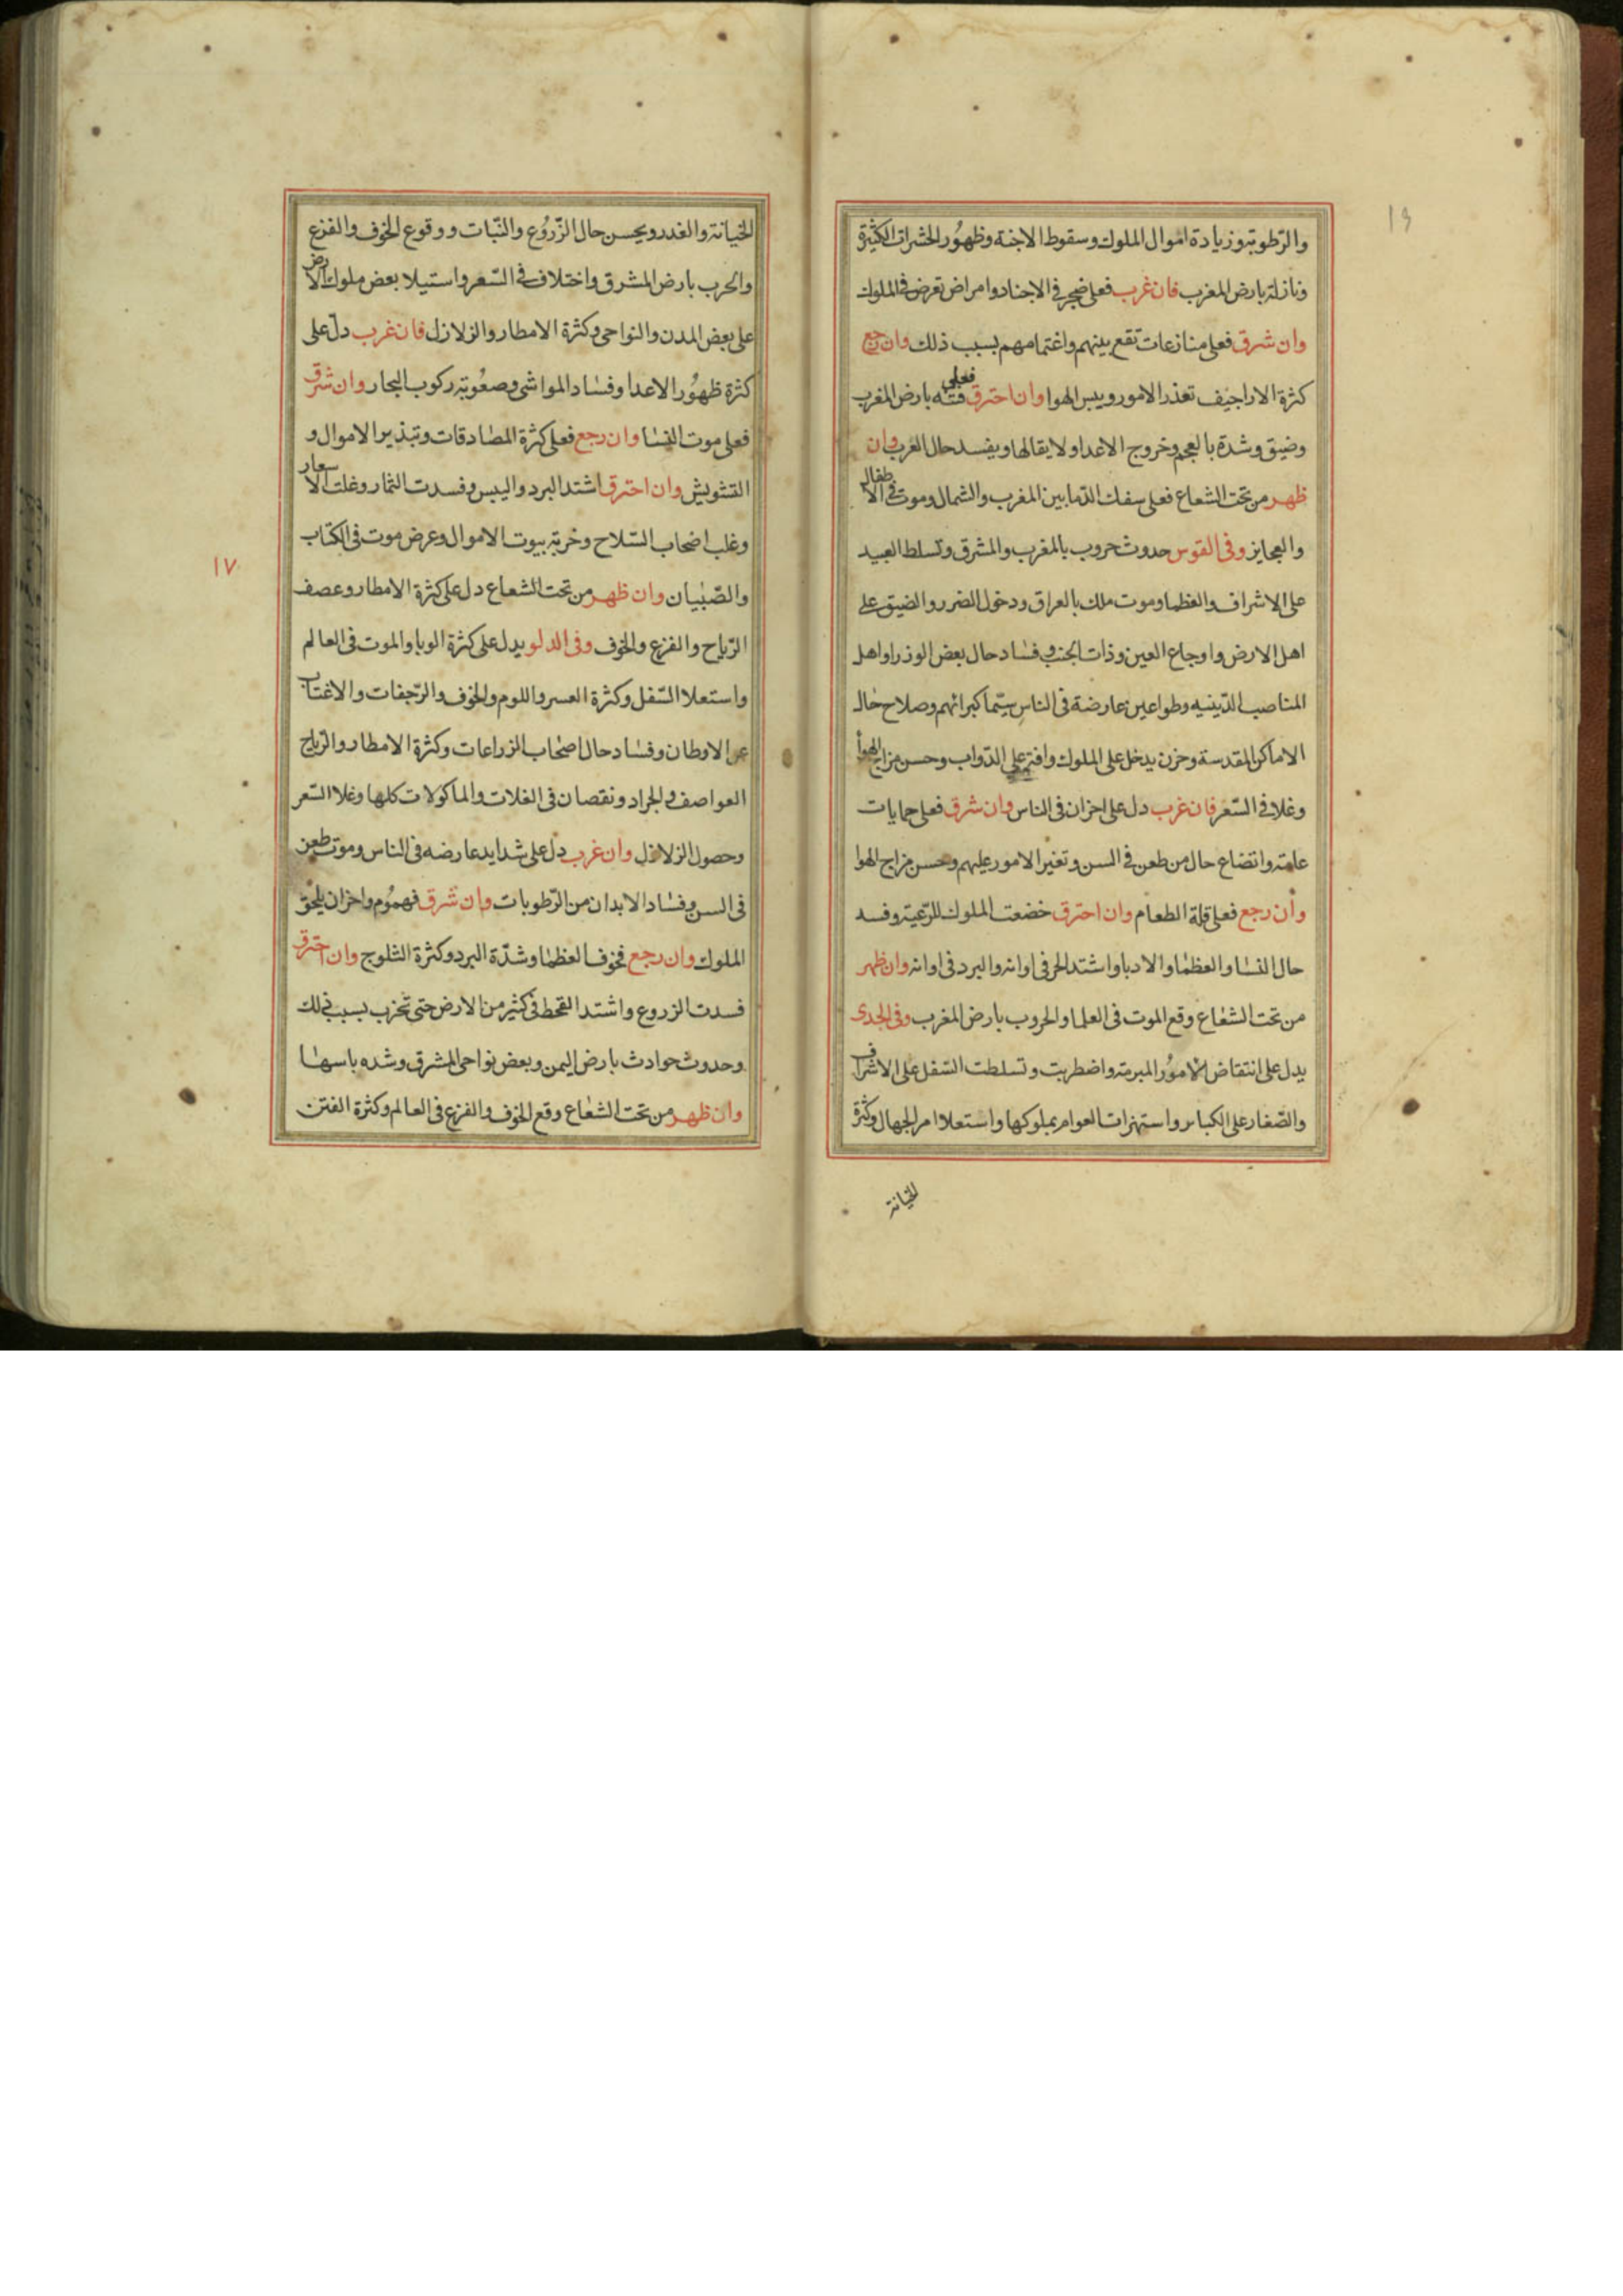 ١٦
والرّطوبة وزيادة اموال الملوك وسقوط الاجنة وظهور الحشرات الكثيرة
ونازلة بارض المغرب فان غرب فعلى ضجر فى الاجناد وامراض تعرض فى الملوك
وان شرق فعلى منازعات تقع بينهم واغتمامهم بسبب ذلك وان رجع
كثرة الاراجيف تعذر الامور ويبس الهوا وان احترق فعلى فتنه بارض المغرب
وضيق وشدة بالعجم وخروج الاعدا ولا يقالها ويفسد حال العرب وان
ظهر من تحت الشعاع فعلى سفك الدّما بين المغرب والشمال وموت فى الاطفال
والعجايز وفى القوس حدوث حروب بالمغرب والمشرق وتسلط العبيد
على الاشراف والعظما وموت ملك بالعراق ودخول الضرر والضيق على
اهل الارض واوجاع العين وذات الجنب وفساد حال بعض الوذرا واهل
المناصب الدّينيه وطواعين عارضة فى الناس سيّما كبرائهم وصلاح حال
الاماكن المقدسة وحزن يدخل على الملوك وافة على الدّواب وحسن مزاج الهوا
وغلا فى السّعر فان غرب دل على احزان فى الناس وان شرق فعلى حمايات
عامة واتضاع حال من طعن فى السن وتغير الامور عليهم وحسن مزاج الهوا
وأن رجع فعلى قلة الطعام وان احترق خضعت الملوك للرّعية وفسد
حال النسا والعظما والادبا واشتد الحر فى اوانه والبرد فى اوانه وان ظهر
من تحت الشعاع وقع الموت فى العلما والحروب بارض المغرب وفى الجدى
يدل على انتقاض الامور المبرمة واضطربت وتسلطت السّفل على الاشراف
والصّغار على الكبار واستهزات العوام بملوكها واستعلا امر الجهال وكثرة
الخيانة
الخيانة والغدر ويحسن حال الزّروُع والنّبات ووقوع الخوف والفزع
والحرب بارض المشرق واختلاف فى السّعر واستيلا بعض ملوك الارض
على بعض المدن والنواحى وكثرة الامطار والزلازل فان غرب دلّ على
كثرة ظهُور الاعدا وفساد المواشى وصعُوبة ركوب البحار وان شرق
فعلى موت النسا وان رجع فعلى كثرة المصادقات وتبذير الاموال و
التشويش وان احترق اشتد البرد واليبس وفسدت الثمار وغلت الاسعار
وغلب اصحاب السّلاح وخربة بيوت الاموال وعرض موت فى الكتاب
١٧
والصّبيان وان ظهر من تحت الشعاع دل على كثرة الامطار وعصف
الرّياح والفزع والخوف وفى الدلو يدل على كثرة الوبا والموت فى العالم
واستعلا السّفل وكثرة العسر واللوم والخوف والرّجفات والاغتاب
عن الاوطان وفساد حال اصحاب الزراعات وكثرة الامطار والرّياح
العواصف والجراد ونقصان فى الغلات والماكولات كلها وغلا السّعر
وحصول الزلازل وان غرب دل على شدايد عارضه فى الناس وموت طعن
فى السن وفساد الابدان من الرّطوبات وان شرق فهمُوم واحزان يلحق
الملوك وان رجع فخوف العظما وشدّة البرد وكثرة الثلوج وان احترق
فسدت الزروع واشتد القحط فى كثير من الارض حتى تخرب بسبب ذلك
وحدوث حوادث بارض اليمن وبعض نواحى المشرق وشده باسها
وان ظهر من تحت الشعاع وقع الخوف والفزع فى العالم وكثرة الفتن